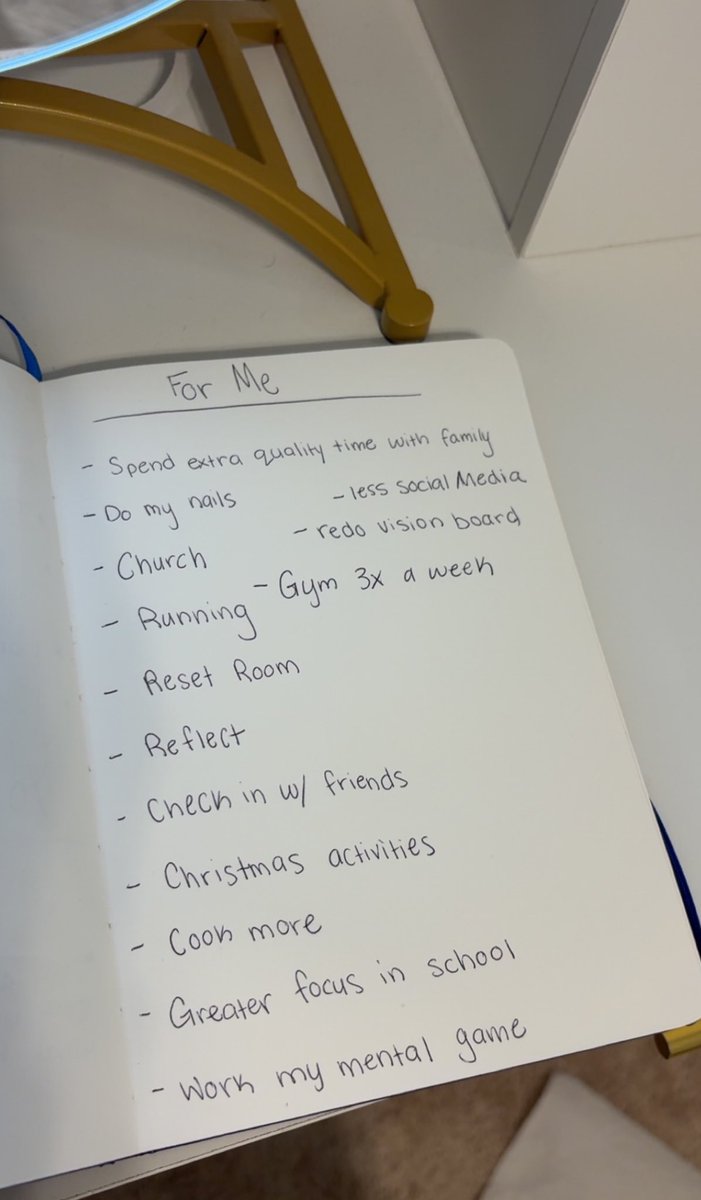 For Me
- Spend extra quality time with family
- Do my nails
- less social Media
- redo vision board
- Church
- Gym 3x a week
- Running
- Reset Room
- Reflect
- Check in w/ friends
- Christmas activities
- Cook more
- Greater focus in school
- Work my mental game